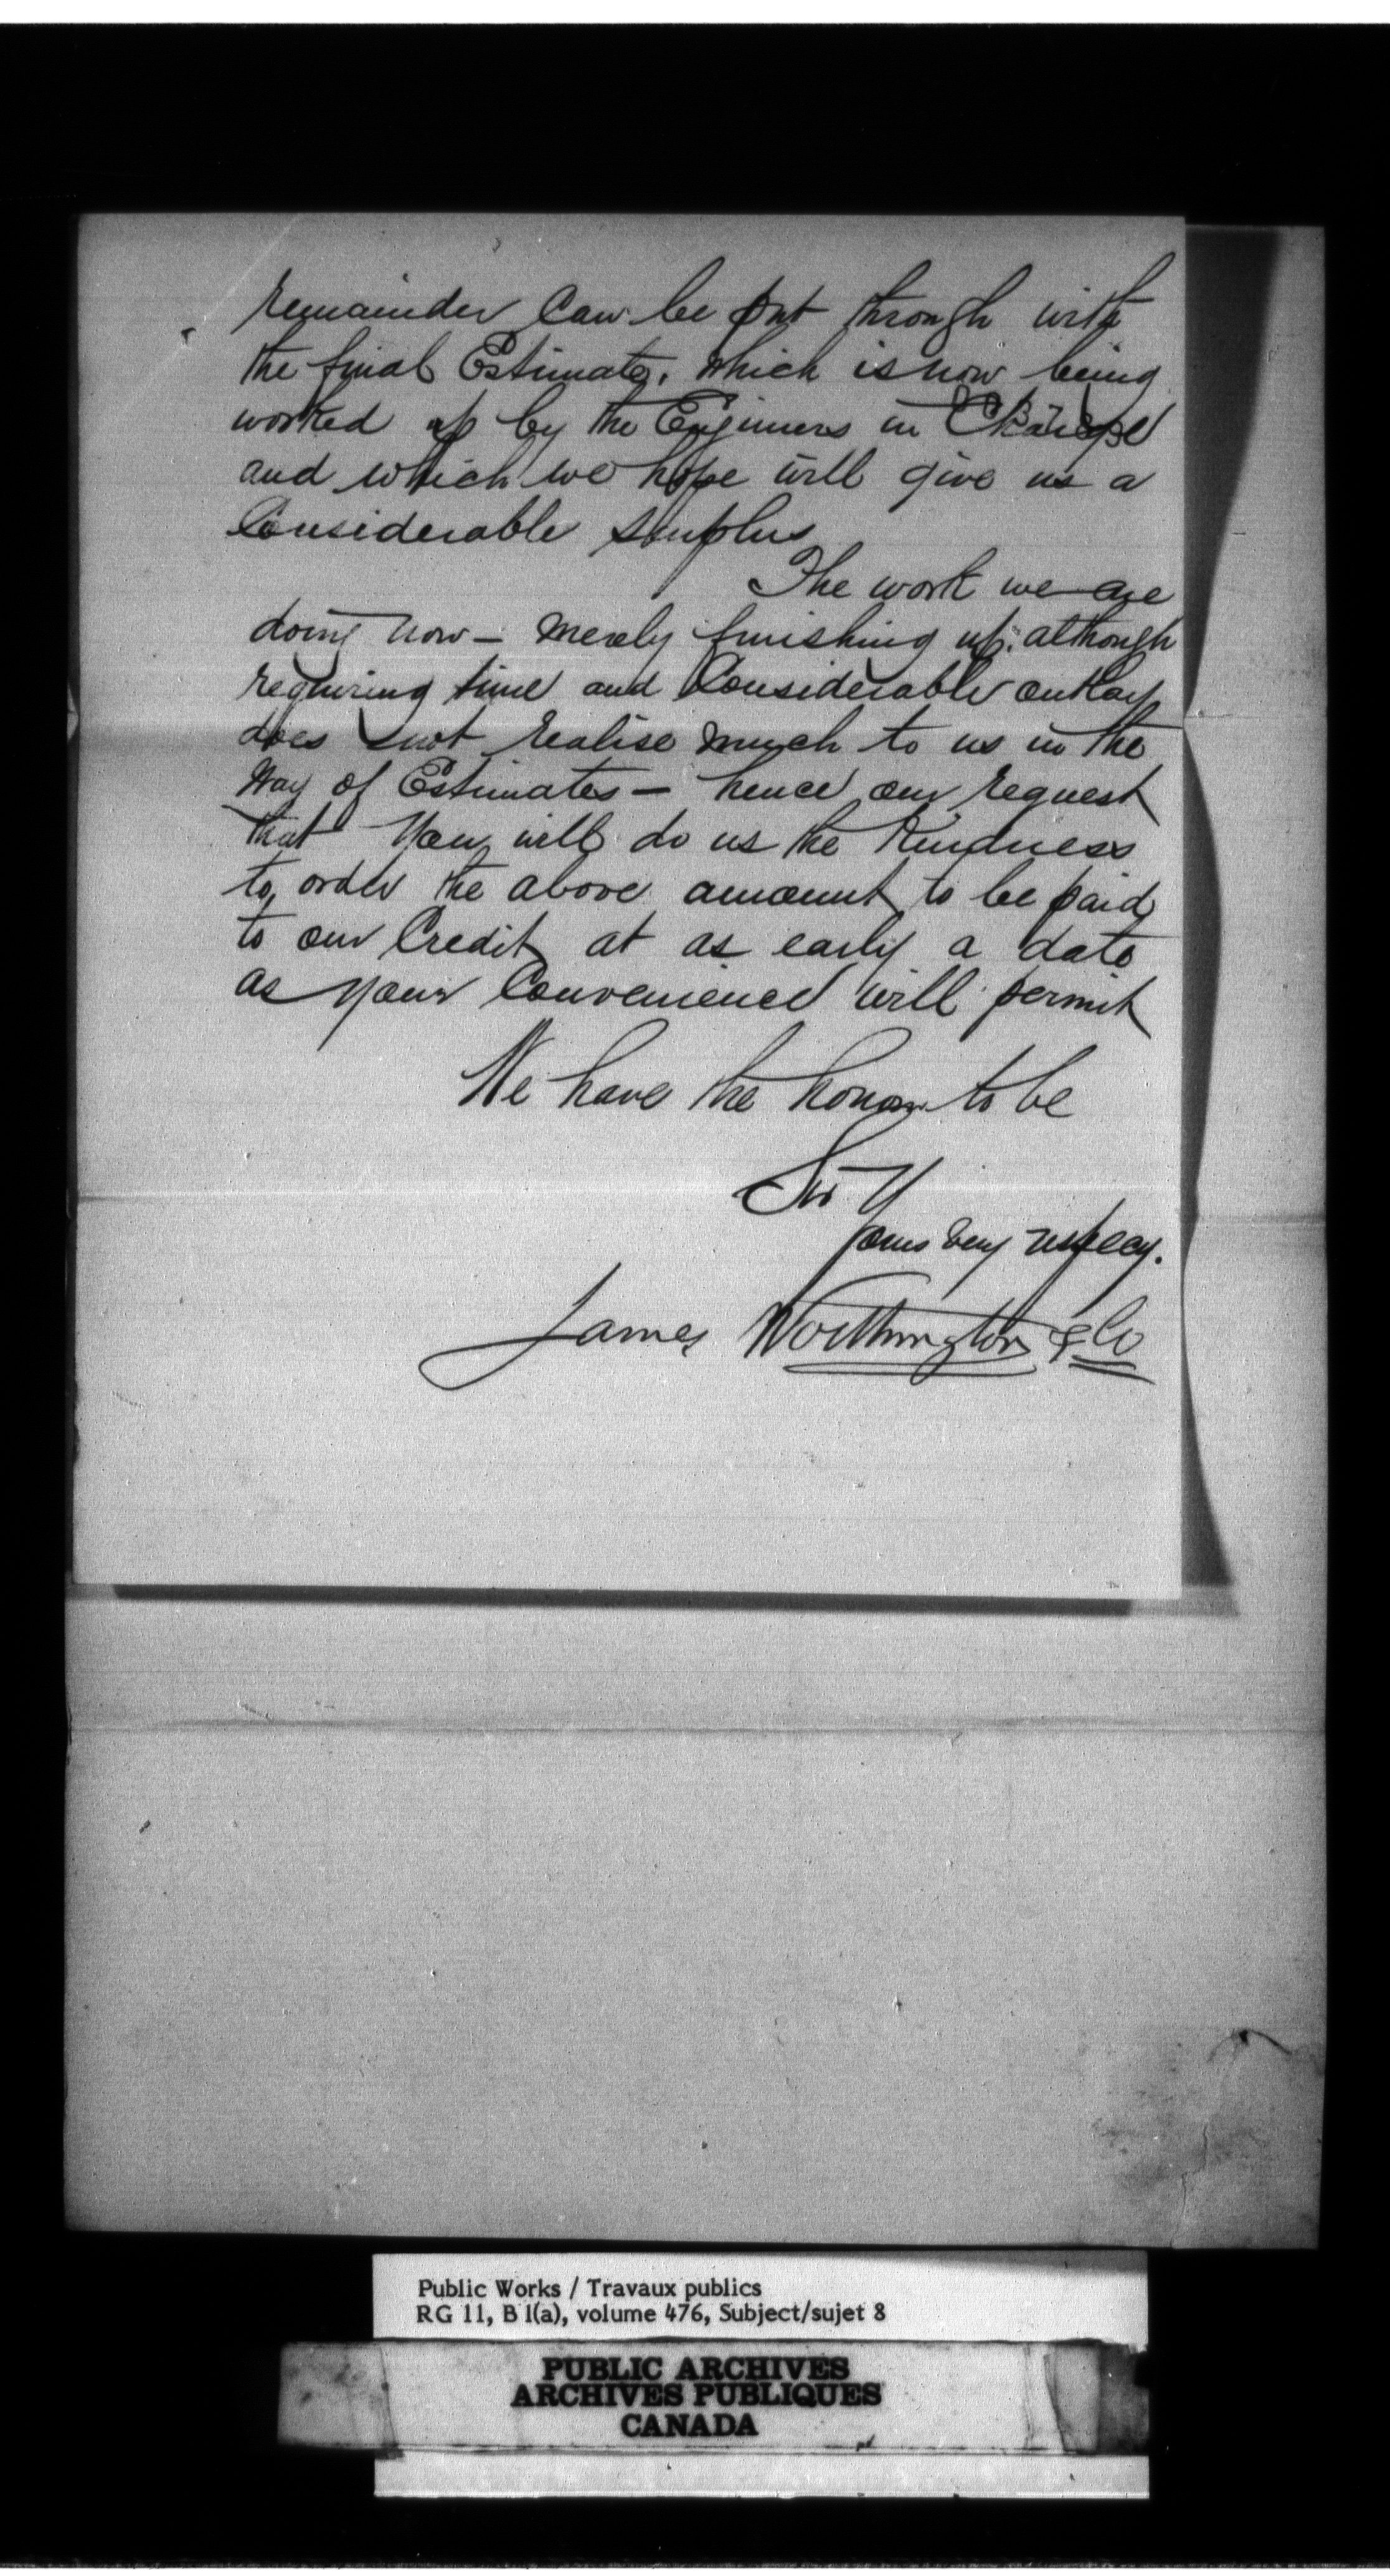 remainder can be put through with
the final Estimate, which is now being
worked up by the Engineers in Charge
and which we hope will give us a
Considerable surplus
The work we are
doing now — merely finishing up: although
requiring time and Considerable outlay
does not realise much to us in the
way of Estimates — hence our request
that you will do us the kindness
to order the above amount to be paid
to our Credit at as early a date
as your Convenience will permit
We have the honor to be
Sir
Yours very respecy.
James Worthington & Co
Public Works / Travaux publics
RG 11, B 1(a), volume 476, Subject/sujet 8
PUBLIC ARCHIVES
ARCHIVES PUBLIQUES
CANADA